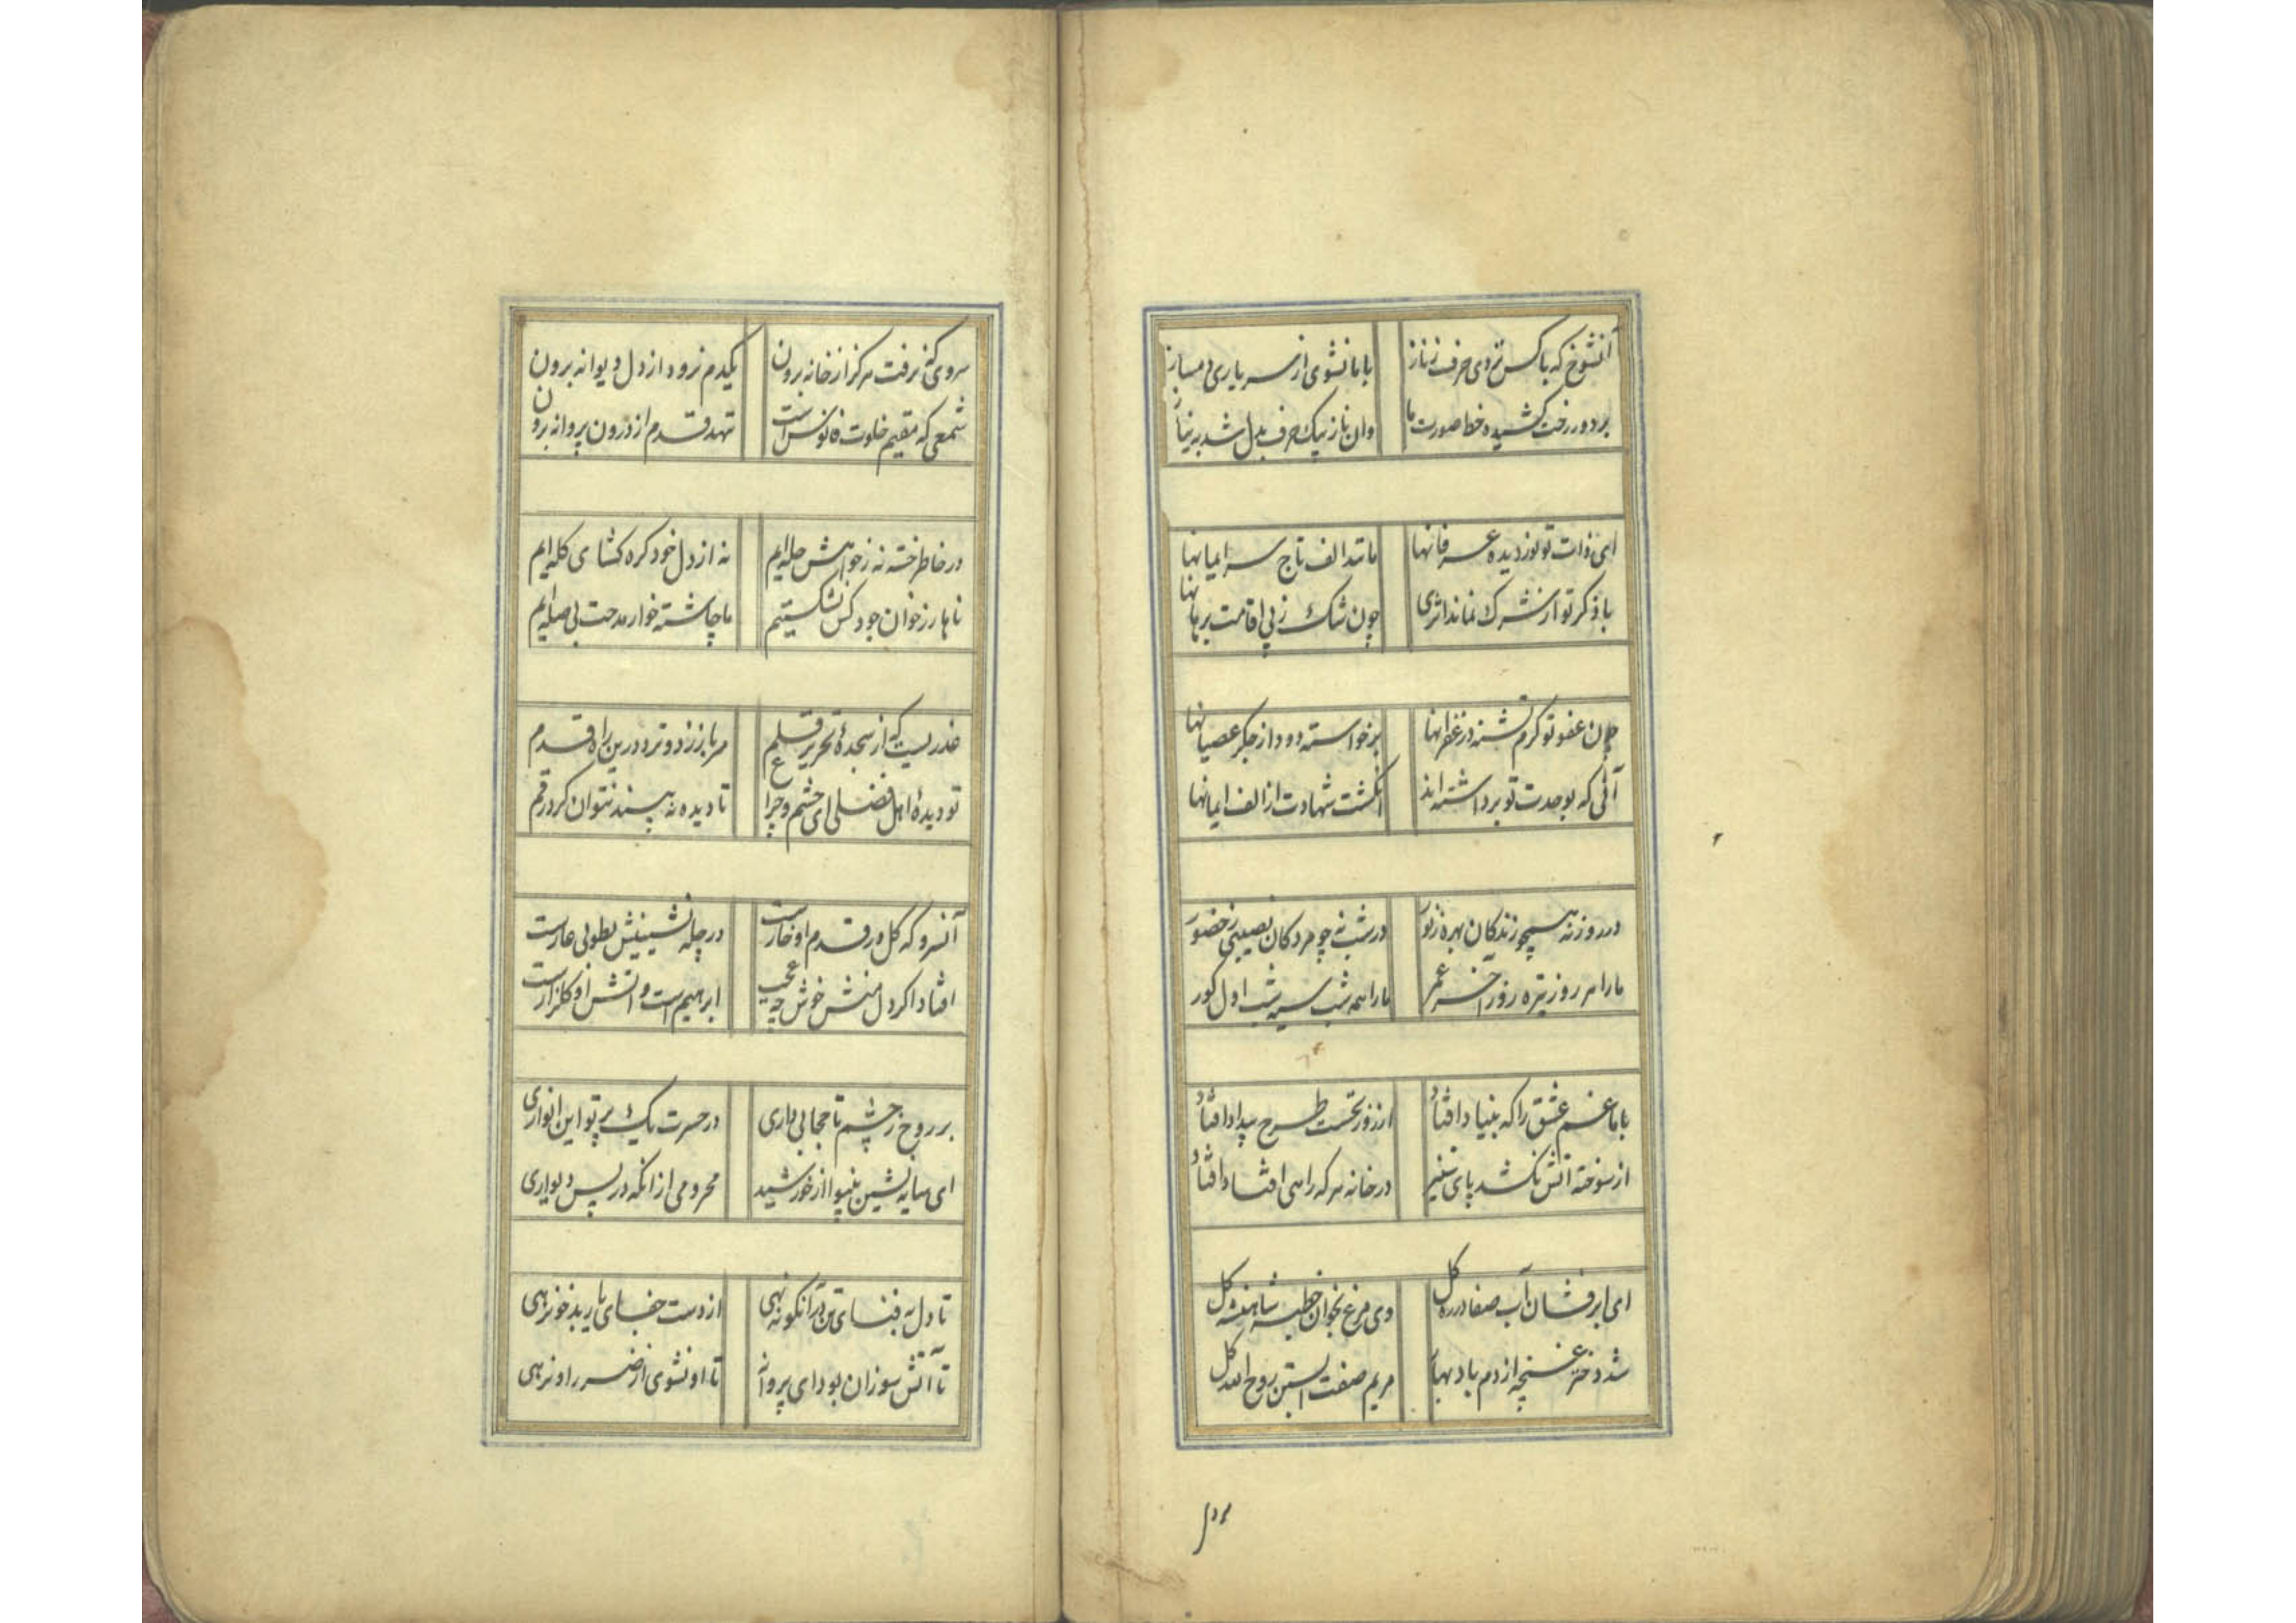 آنشوخ که با کس نزدی حرف ز ناز
با ما نشوی از سر یاری دمساز
بر دور رخت کشیده خط صورت ما
وان ناز بیک حرف بدل شد به نیاز
ای ذات تو نور دیده عرفانها
مانند الف تاج سر ایمانها
با ذکر تو از شرک نماند اثری
چون شک ز پی اقامت برهانها
چون عفو تو کرم نشسته در غفرانها
برخواسته دود از جکر عصیانها
آنی که بوحدت تو برداشته اند
انکشت شهادت از الف ایمانها
در روز نه همچو زندکان بهره ز نور
در شب نه چو مردکان نصیبی ز حضور
ما را هر روز تیره روز آخر عمر
ما را همه شب سیه شب اول کور
با ما غم عشق را که بنیاد افتاد
از روز نخست طرح بیداد افتاد
از سوخته آتش نکشد پای
در خانه هر که راهی افتاد افتاد
ای ابر فشان آب صفا در ره کل
وی مرغ بخوان خطبه شاهنشه کل
شد دختر غنچه از دم باد بهار
مریم صفت آبستن روح الله کل
سروی که نرفت هرکز از خانه برون
یکدم نرود از دل دیوانه برون
شمعی که مقیم خلوت فانوس است
ننهد قدم از درون پروانه برون
در خاطر خسته نه ز خواهش حله ایم
نه از دل خود کره کشای کله ایم
ناهار ز خوان جود کس نشکستیم
ما چاشته خوار مدحت بی صله ایم
عذریست که از سجده تحریر قلم
سر باز زند و ترد درین راه قدم
تو دیده اهل فضلی ای چشم و چراغ
نادیده نه پسند نتوان کرد رقم
آنسرو که کل در قدم او خارست
در چله نشینیش بطوبی عارست
افتاد اکر دل منش خوش چه عجب
ابرهیم است و آتش او کلزارست
بر روح ز چشم تا حجابی داری
در حسرت یک پرتو این انواری
ای سایه نشین بینوا از خورشید
محرومی از انکه در پس دیواری
تا دل به فنای تن در آنکو ننهی
از دست جفای یار بدخو نرهی
تا آتش سوزان بود ای پروانه
تا او نشوی از ضرر او نرهی